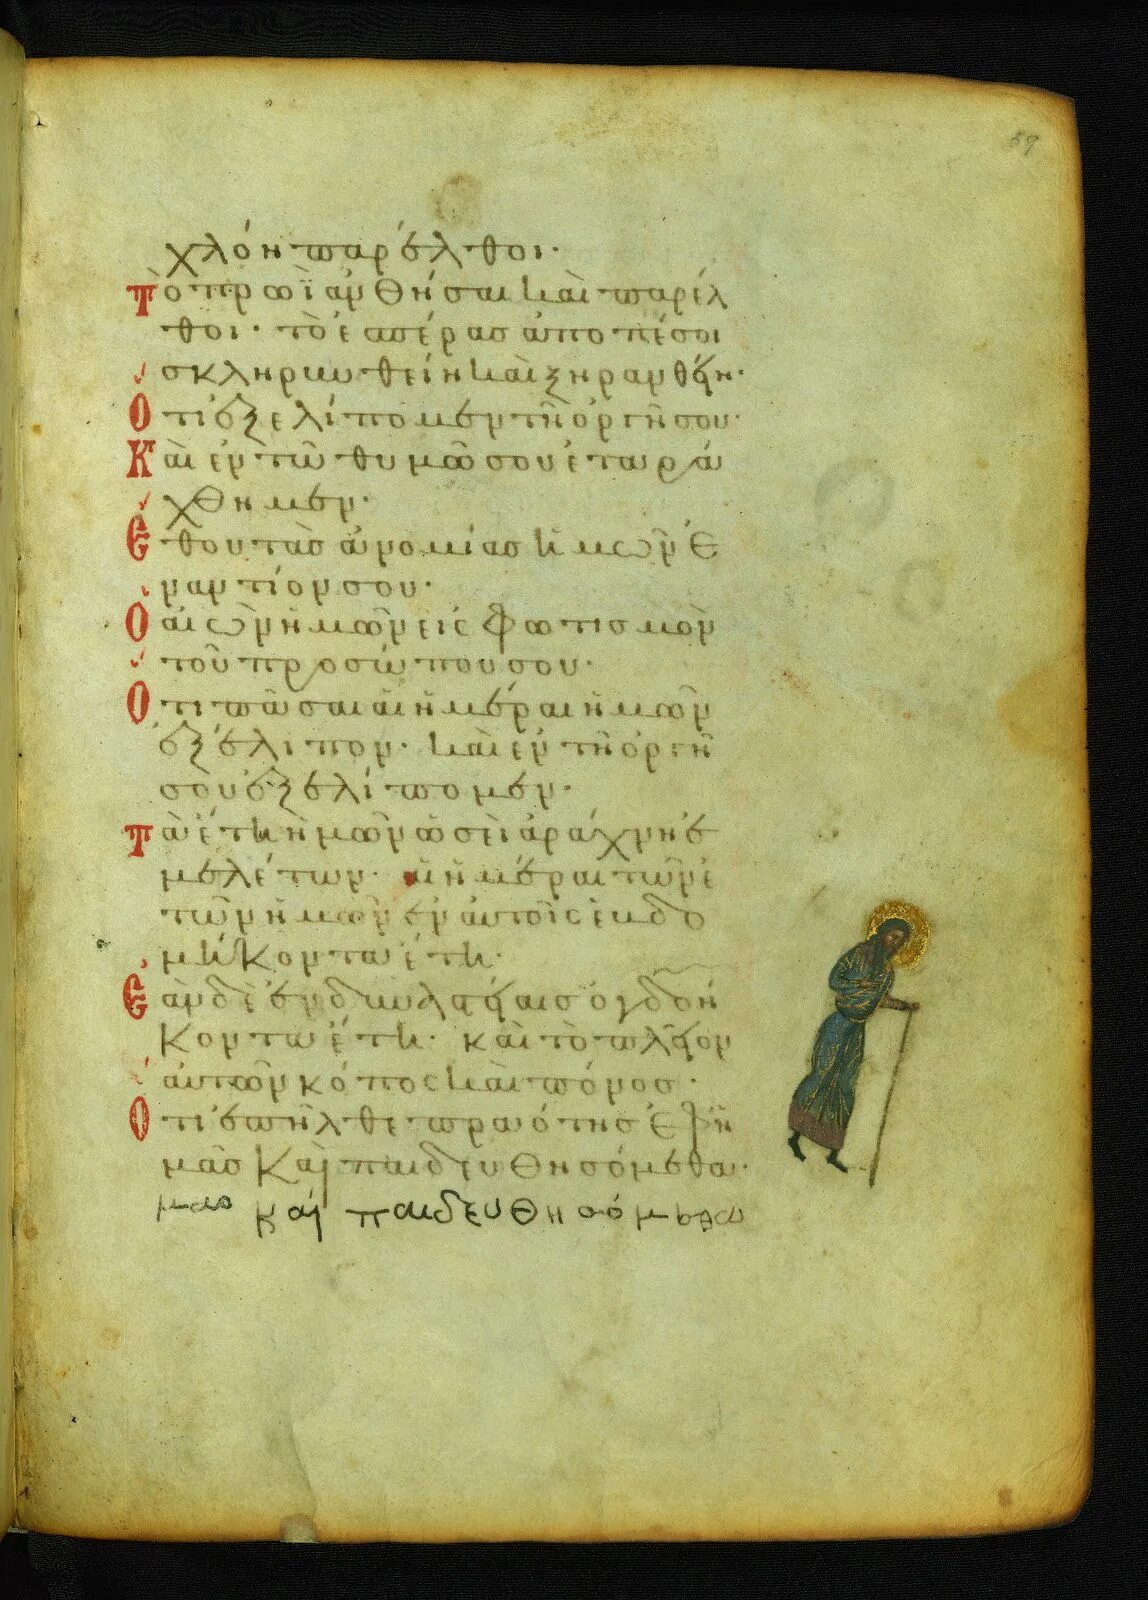 59
χλόη παρέλθοι·
Τὸ πρωῒ ἀνθήσαι καὶ παρέλ
θοι· τὸ ἑσπέρας ἀποπέσοι
σκληρυνθείη καὶ ξηρανθείη·
Ὅτι ἐξελίπομεν τῆ ὀργῆ σου·
Καὶ ἐν τῶ θυμῶ σου ἐταρά
χθημεν·
Ἔθου τὰς ἀνομίας ἡμῶν ἐ
ναντίον σου·
Ὁ αἰὼν ἡμῶν εἰς φωτισμὸν
τοῦ προσώπου σου·
Ὅτι πᾶσαι αἱ ἡμέραι ἡμῶν
ἐξέλιπον· καὶ ἐν τῆ ὀργῆ
σοῦ ἐξελίπομεν·
Τὰ ἔτη ἡμῶν ὡσεὶ ἀράχνη ἐ
μελέτων· αἱ ἡμέραι τῶν ἐ
τῶν ἡμῶν ἐν αὐτοῖς ἑβδο
μήκοντα ἔτη·
Ἐὰν δὲ ἐν δυναστείαις ὀγδοή
κοντα ἔτη· καὶ τὸ πλεῖον
αὐτῶν κόπος καὶ πόνος·
Ὅτι ἐπῆλθε πραότης ἐφ ἡ
μᾶς καὶ παιδευθησόμεθα·
μας καὶ παιδευθησόμεθα